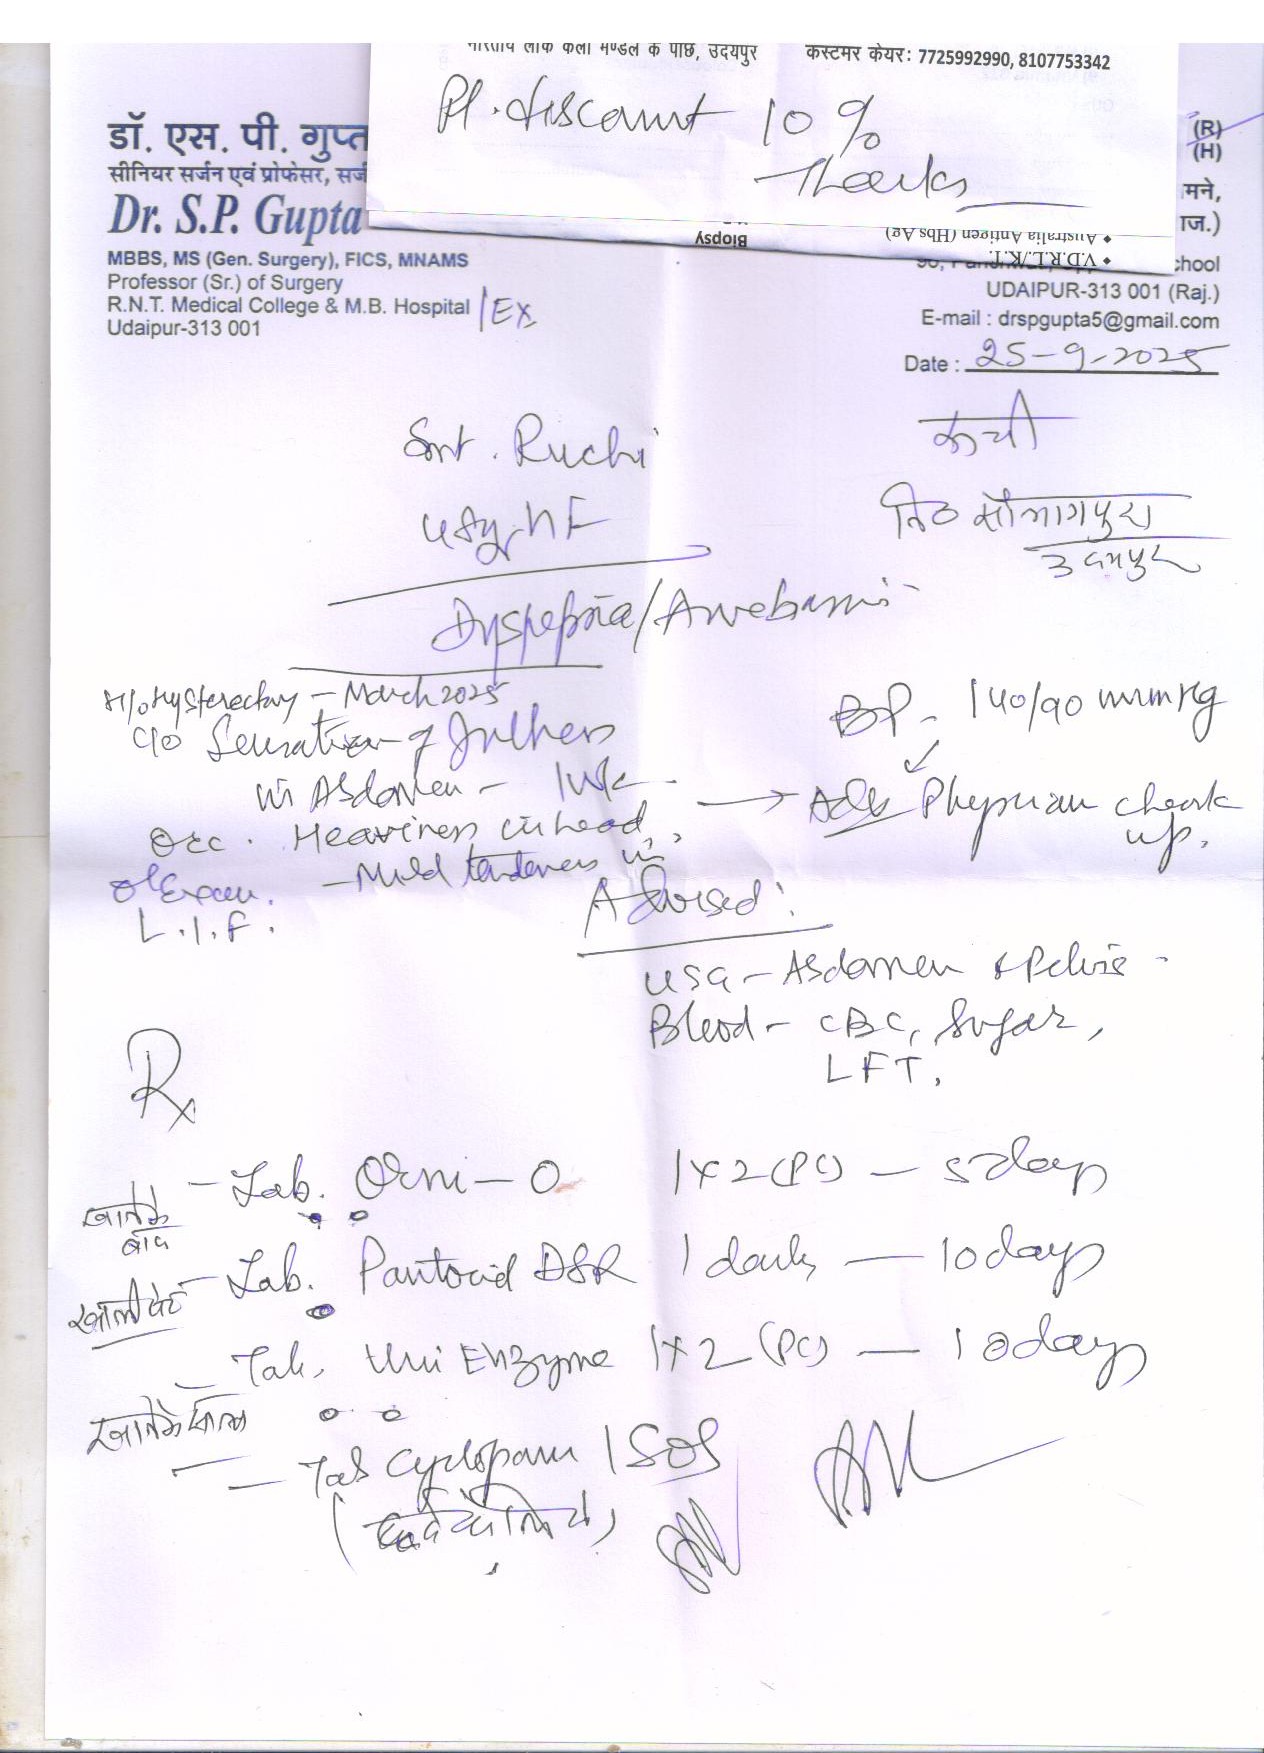 भारतीय लोक कला मण्डल के पीछे, उदयपुर कस्टमर केयर: 7725992990, 8107753342
Pl. discount 10 %
Thanks
• V.D.R.L./K.T.
• Australia Antigen (Hbs Ag)
Biopsy
डॉ. एस. पी. गुप्त
सीनियर सर्जन एवं प्रोफेसर, सर्ज
Dr. S.P. Gupta
MBBS, MS (Gen. Surgery), FICS, MNAMS
Professor (Sr.) of Surgery
R.N.T. Medical College & M.B. Hospital / Ex
Udaipur-313 001
(R)
(H)
मने,
ाज.)
chool
UDAIPUR-313 001 (Raj.)
E-mail : drspgupta5@gmail.com
Date : 25-9-2025
Smt. Ruchi
नि० सौभागपुरा
उदयपुर
Dyspepsia/Amebiasis
H/o Hysterectomy - March 2025
c/o Sensation of
in Abdomen - 1 wk
Occ. Heaviness in head
O/Exam. - Mild tenderness in
L.I.F.
BP - 140/90 mmHg
→ Adv Physician check
up.
Advised:
USG - Abdomen & Pelvis -
Blood - CBC, Sugar,
LFT.
Rx
- Tab. Orni - O 1x2 (PC) - 5 days
खाने के
बाद
- Tab. Pantocid DSR 1 daily - 10 days
खाली पेट
- Tab. Uni Enzyme 1x2 (PC) - 10 days
खाने के
- Tab Cyclopam 1 SOS